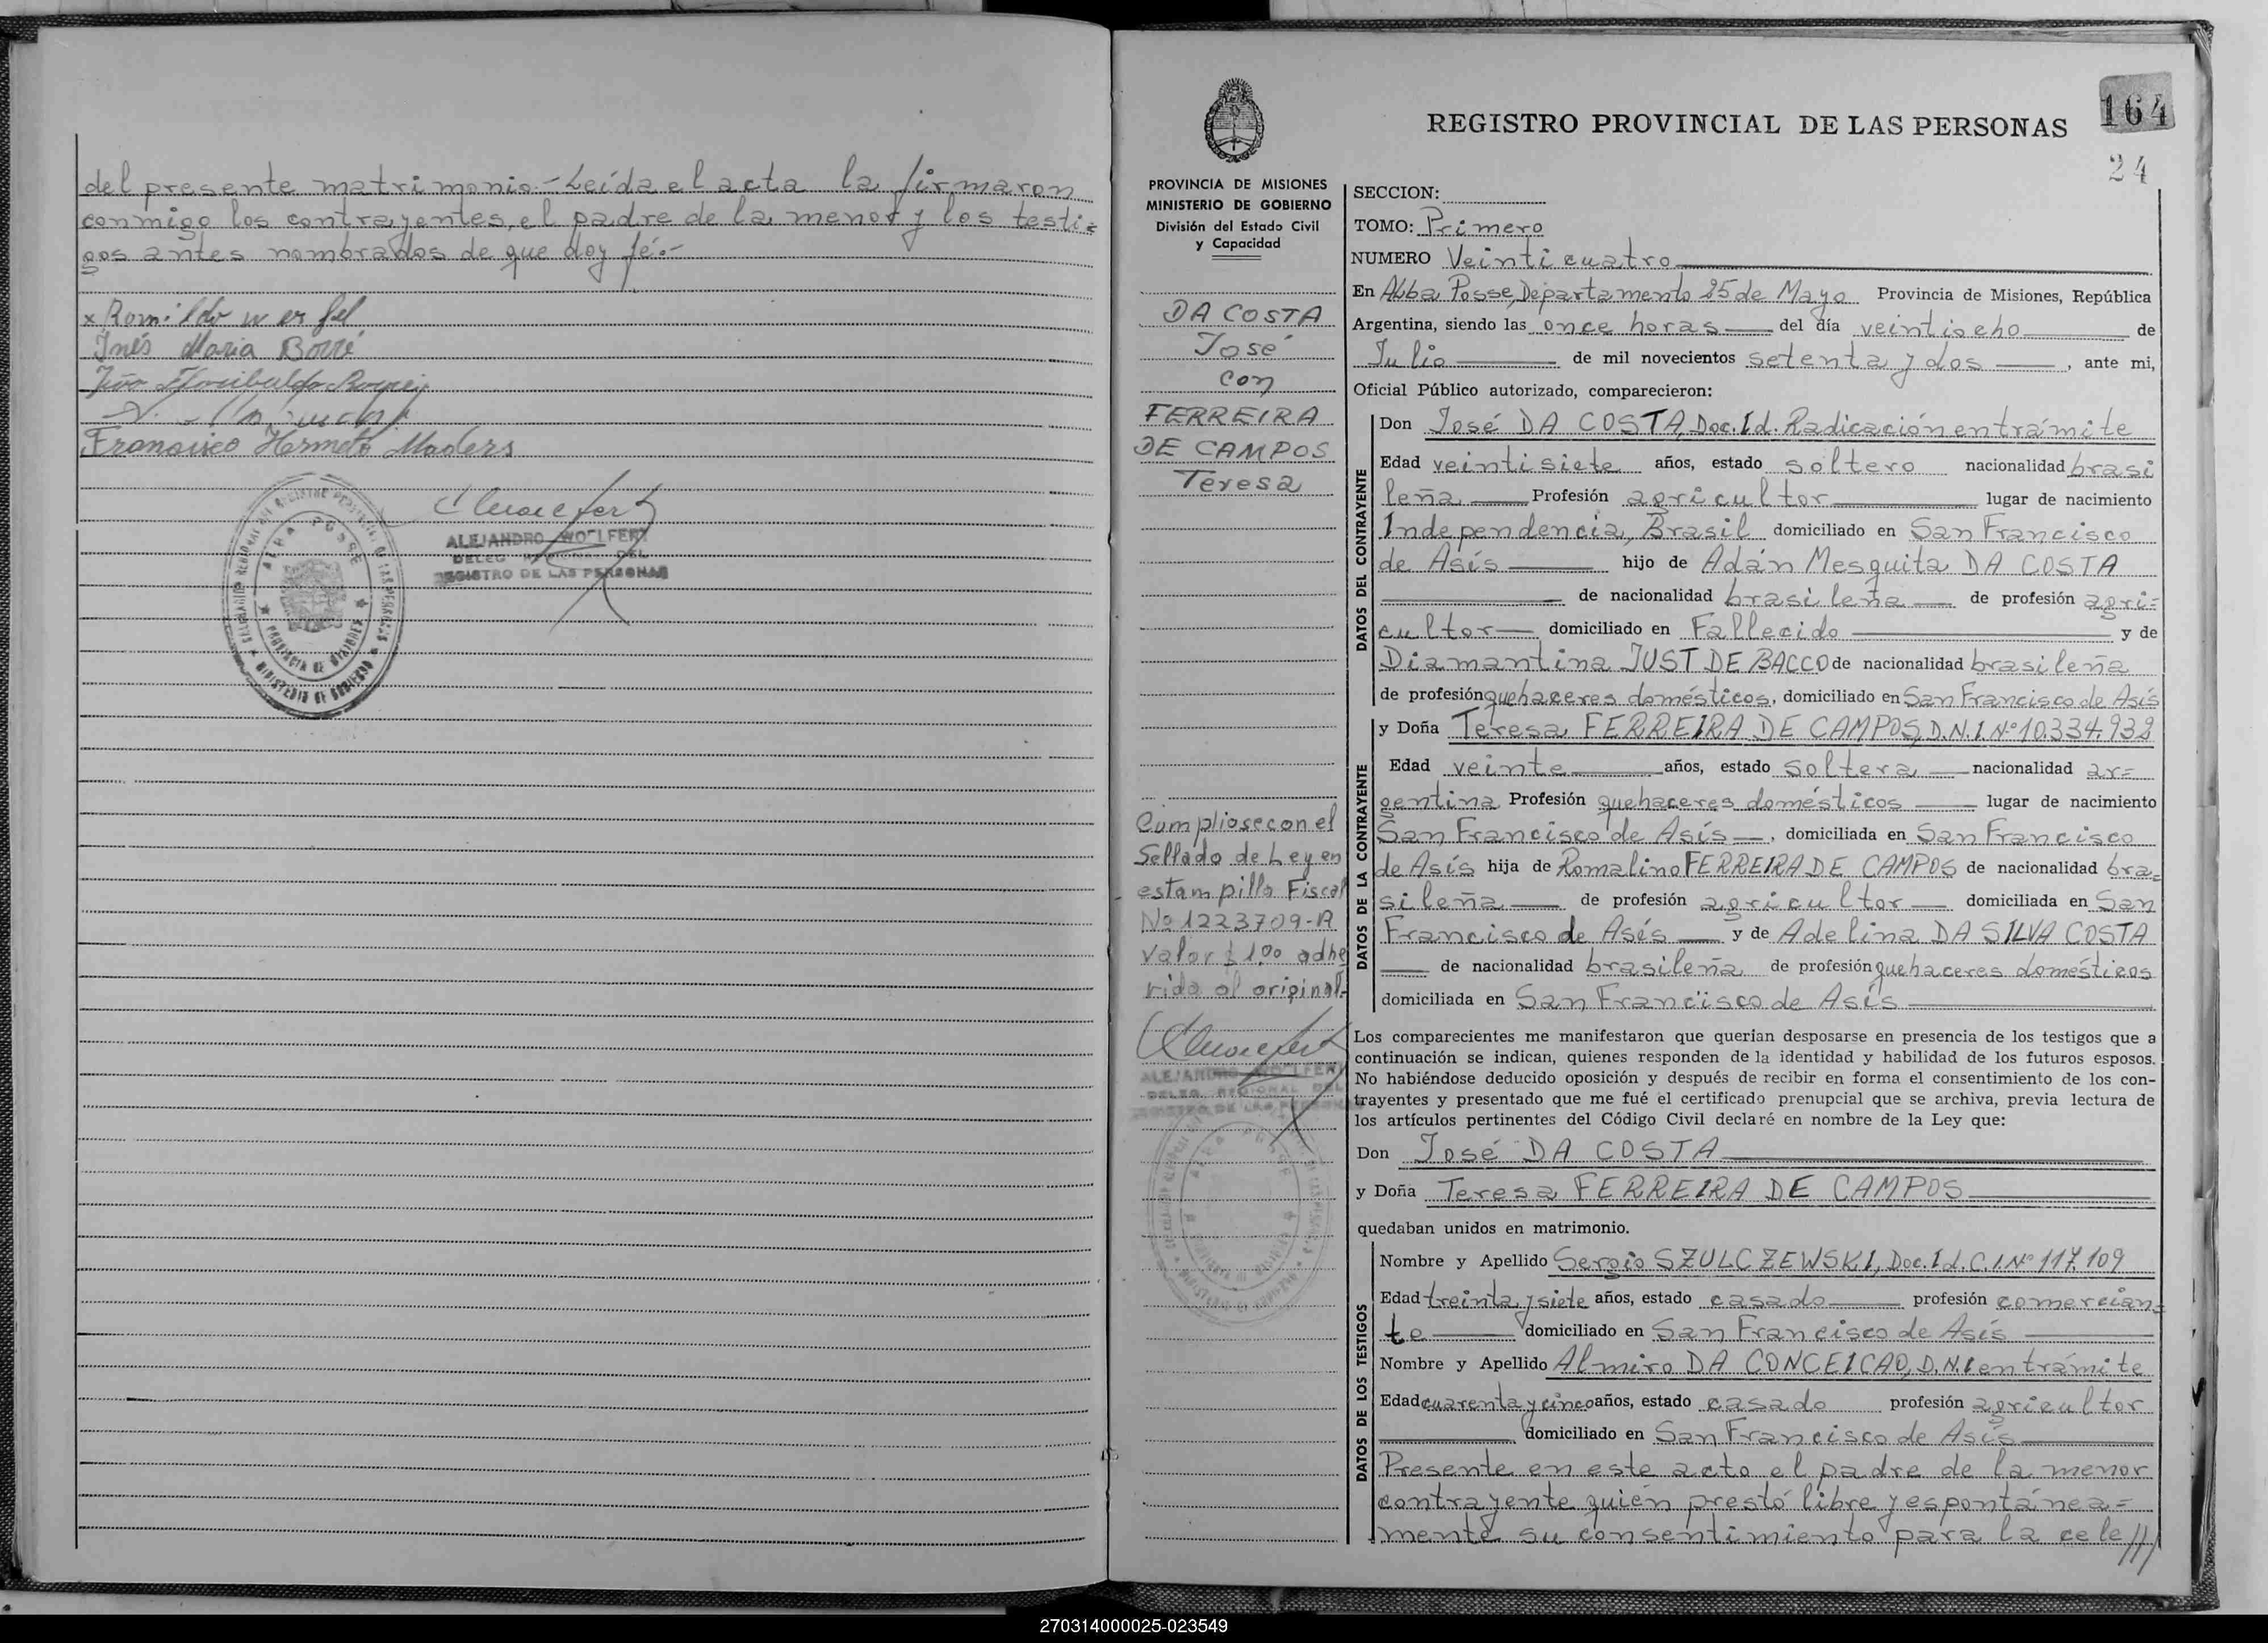 del presente matrimonio.- Leída el acta la firmaron
conmigo los contrayentes, el padre de la menor y los testi=
gos antes nombrados de que doy fé.-
x Romildo
Inés Maria Borré
Francisco Hermeto Maders
ALEJANDRO WOLFERT
DELEG. REGIONAL DEL
REGISTRO DE LAS PERSONAS
ALBA POSSE
PROVINCIA DE MISIONES
MINISTERIO DE GOBIERNO
164
REGISTRO PROVINCIAL DE LAS PERSONAS
24
PROVINCIA DE MISIONES
MINISTERIO DE GOBIERNO
División del Estado Civil
y Capacidad
DA COSTA
José
con
FERREIRA
DE CAMPOS
Teresa
Cumpliose con el
Sellado de Ley en
estampilla Fiscal
Nº 1223709-A
Valor $ 1,00 adhe
rida al original.-
ALEJANDRO WOLFERT
DELEG. REGIONAL DEL
REGISTRO DE LAS PERSONAS
SECCION:
TOMO: Primero
NUMERO Veinticuatro
En Alba Posse, Departamento 25 de Mayo Provincia de Misiones, República
Argentina, siendo las once horas del día veintiocho de
Julio de mil novecientos setenta y dos, ante mi,
Oficial Público autorizado, comparecieron:
DATOS DEL CONTRAYENTE
Don José DA COSTA, Doc. Id. Radicación en trámite
Edad veintisiete años, estado soltero nacionalidad brasi
leña Profesión agricultor lugar de nacimiento
Independencia, Brasil domiciliado en San Francisco
de Asís hijo de Adán Mesquita DA COSTA
de nacionalidad brasileña de profesión agri=
cultor domiciliado en Fallecido y de
Diamantina JUST DE BACCO de nacionalidad brasileña
de profesión quehaceres domésticos, domiciliado en San Francisco de Asís
DATOS DE LA CONTRAYENTE
y Doña Teresa FERREIRA DE CAMPOS, D.N.I. Nº 10.334.932
Edad veinte años, estado soltera nacionalidad ar=
gentina Profesión quehaceres domésticos lugar de nacimiento
San Francisco de Asís, domiciliada en San Francisco
de Asís hija de Romalino FERREIRA DE CAMPOS de nacionalidad bra=
sileña de profesión agricultor domiciliada en San
Francisco de Asís y de Adelina DA SILVA COSTA
de nacionalidad brasileña de profesión quehaceres domésticos
domiciliada en San Francisco de Asís
Los comparecientes me manifestaron que querían desposarse en presencia de los testigos que a
continuación se indican, quienes responden de la identidad y habilidad de los futuros esposos.
No habiéndose deducido oposición y después de recibir en forma el consentimiento de los con-
trayentes y presentado que me fué el certificado prenupcial que se archiva, previa lectura de
los artículos pertinentes del Código Civil declaré en nombre de la Ley que:
Don José DA COSTA
y Doña Teresa FERREIRA DE CAMPOS
quedaban unidos en matrimonio.
DATOS DE LOS TESTIGOS
Nombre y Apellido Sergio SZULCZEWSKI, Doc. Id. C.I. Nº 117.109
Edad treinta y siete años, estado casado profesión comercian=
te domiciliado en San Francisco de Asís
Nombre y Apellido Almiro DA CONCEICAO, D.N.I en trámite
Edad cuarenta y cinco años, estado casado profesión agricultor
domiciliado en San Francisco de Asís
Presente en este acto el padre de la menor
contrayente quién prestó libre y espontánea=
mente su consentimiento para la cele///
270314000025-023549